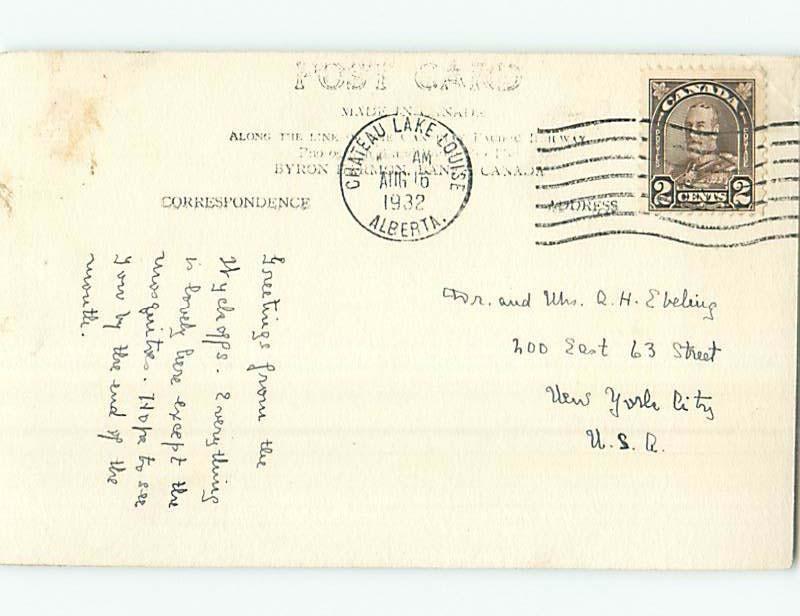 POST CARD
MADE IN CANADA
ALONG THE LINE OF THE CANADIAN PACIFIC RAILWAY
BYRON HARMON, BANFF, CANADA
CORRESPONDENCE
ADDRESS
CHATEAU LAKE LOUISE
AM
AUG 16
1932
ALBERTA.
CANADA
POSTES POSTAGE
2 CENTS 2
Greetings from the
Wyckoffs. Everything
is lovely here except the
mosquitoes. Hope to see
you by the end of the
month.
Dr. and Mrs. A. H. Ebeling
200 East 63 Street
New York City
U.S.A.